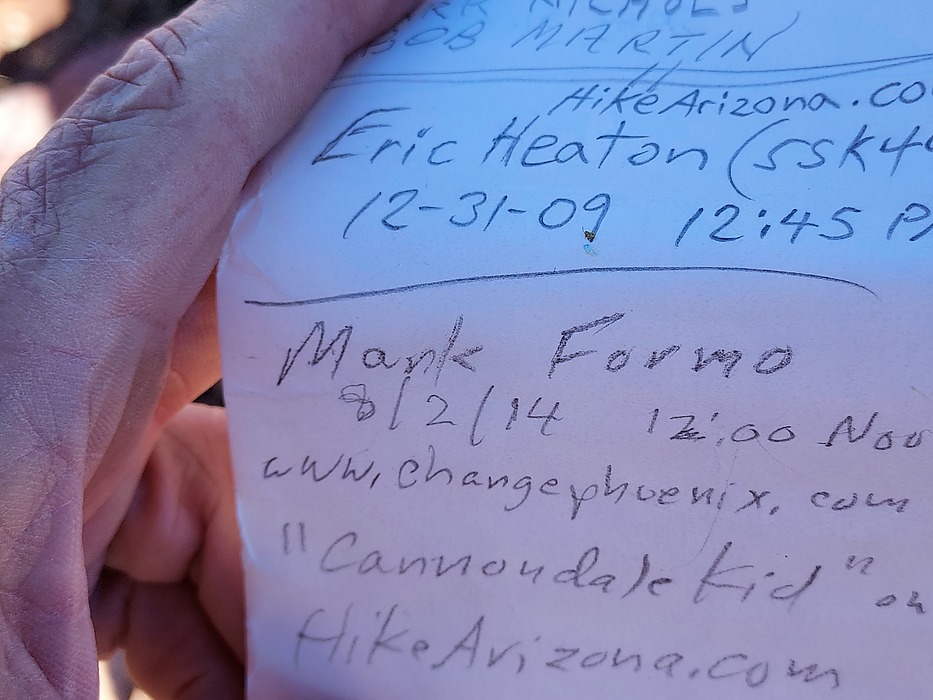 NICHOLS
BOB MARTIN
HikeArizona.co
Eric Heaton (ssk44
12-31-09 12:45 P
Mark Formo
8/2/14 12:00 Noo
www.changephoenix.com
"Cannondale Kid" on
HikeArizona.com